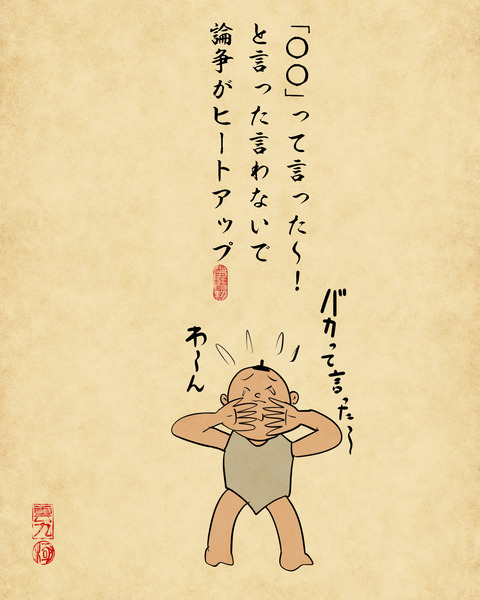 「〇〇」って言った〜！
と言った言わないで
論争がヒートアップ
バカって言った〜
わ〜ん